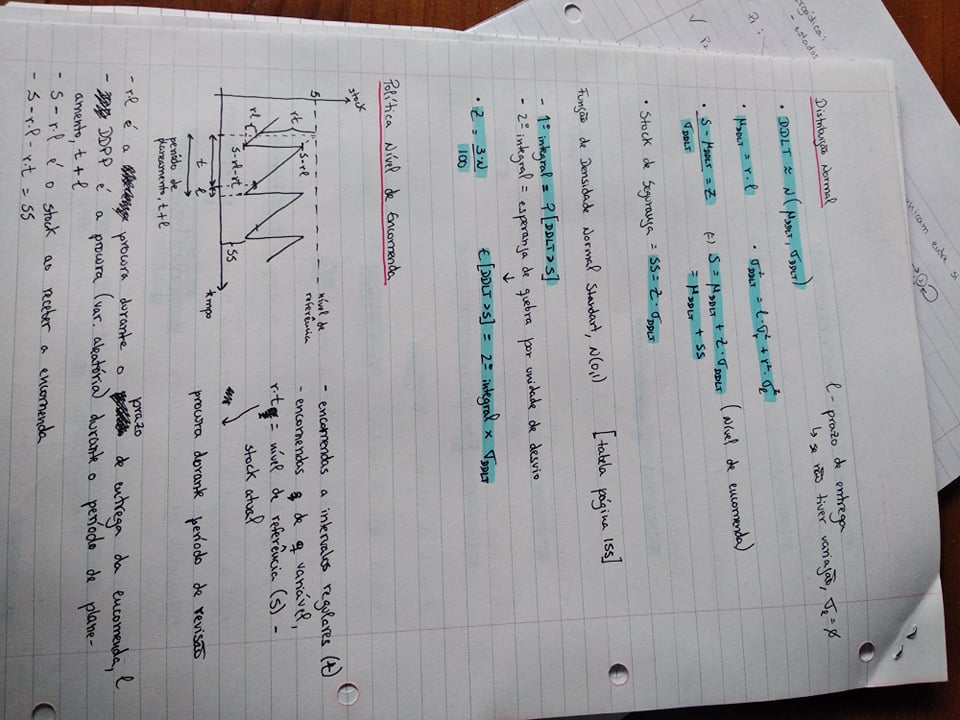 unicam entre si
ergótica:
- estados
P1:
√ P2
Distribuição Normal
l - prazo de entrega
↳ se não tiver variação, σ_l = ∅
• DDLT ≈ N(μ_DDLT, σ_DDLT)
• μ_DDLT = r·l
• σ²_DDLT = l·σ_r² + r²·σ_l²
• S-μ_DDLT / σ_DDLT = Z (=) S = μ_DDLT + Z·σ_DDLT (Nível de encomenda)
= μ_DDLT + SS
• Stock de Segurança = SS = Z·σ_DDLT
Função de Densidade Normal Standart, N(0,1) [tabela página 155]
- 1º integral = P[DDLT>S]
- 2º integral = esperança de quebra por unidade de desvio
↓
• Z = 3·N / 100
E[DDLT>S] = 2º integral × σ_DDLT
Política Nível de Encomenda
stock
S
nível de
referência
rt
S-rl
rl
S-rl-rt
SS
tempo
t
l
período de
planeamento, t+l
- encomendas a intervalos regulares (t)
- encomendas de q variável,
r.t = nível de referência (S) -
stock atual
procura durante período de revisão
- rl é a procura durante o prazo de entrega da encomenda, l
- DDPP é a procura (var. aleatória) durante o período de plane-
amento, t+l
- S-r.l é o stock ao receber a encomenda
- S-r.l-r.t = SS